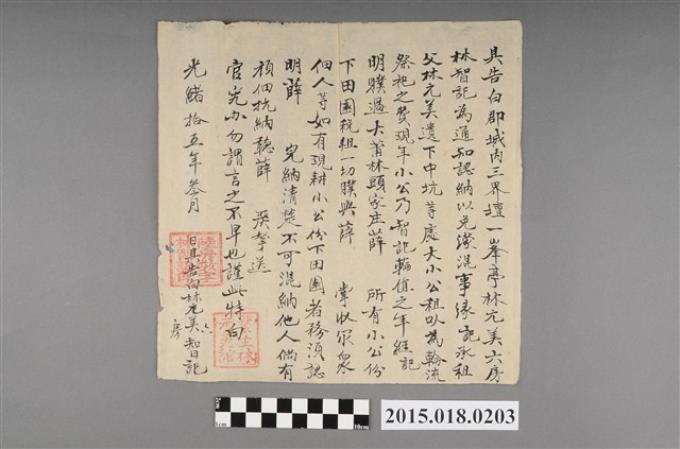 具告白郡城內三界壇一峯亭林元美六房
林智記為通知認納以免淆混事緣記承祖
父林元美遺下中坑等處大小公租以為輪流
祭祀之費現年小公乃智記輪值之年經記
明贌過大莆林頭家庄薛 所有小公份
下田園稅租一切贌與薛 掌收眾
佃人等如有現耕小公份下田園者務須認
明薛 完納清楚不可混納他人倘有
頑佃抗納聽薛 送
官究办勿謂言之不早也謹此特白
光緒拾五年叁月 日具告白林元美六房智記
2015.018.0203